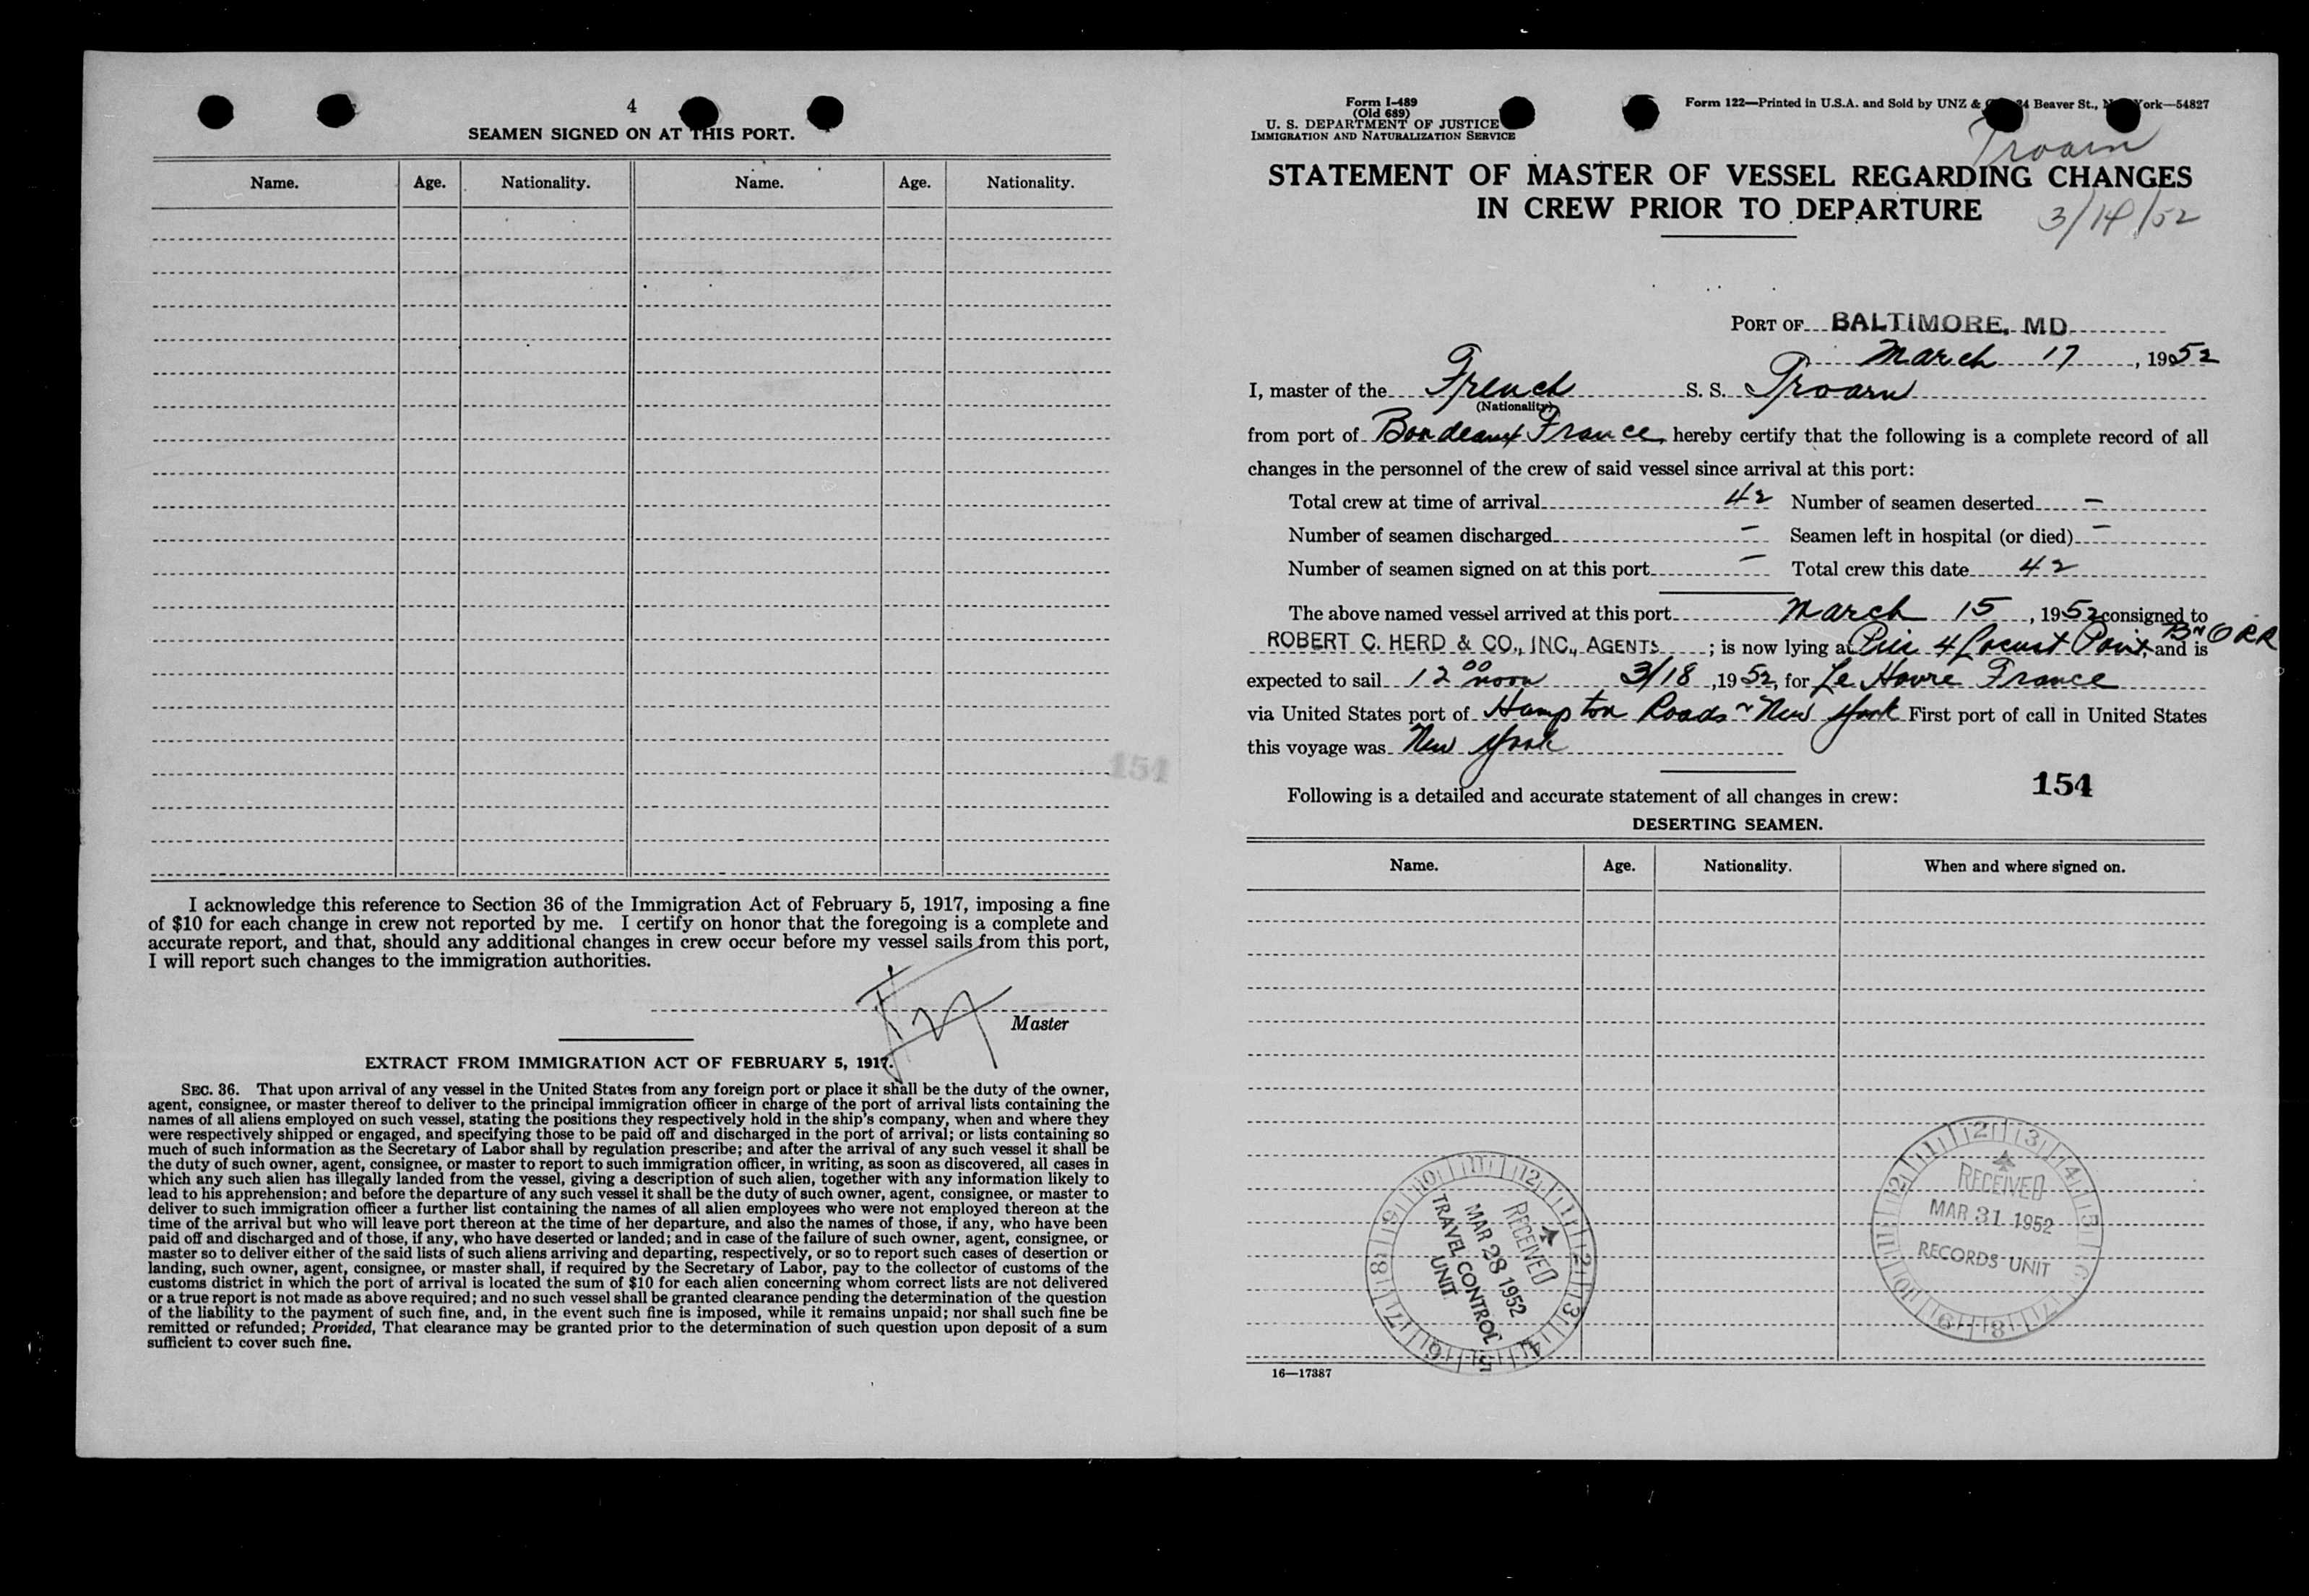 4
SEAMEN SIGNED ON AT THIS PORT.
Name. Age. Nationality. Name. Age. Nationality.
I acknowledge this reference to Section 36 of the Immigration Act of February 5, 1917, imposing a fine
of $10 for each change in crew not reported by me. I certify on honor that the foregoing is a complete and
accurate report, and that, should any additional changes in crew occur before my vessel sails from this port,
I will report such changes to the immigration authorities.
Master
EXTRACT FROM IMMIGRATION ACT OF FEBRUARY 5, 1917.
SEC. 36. That upon arrival of any vessel in the United States from any foreign port or place it shall be the duty of the owner,
agent, consignee, or master thereof to deliver to the principal immigration officer in charge of the port of arrival lists containing the
names of all aliens employed on such vessel, stating the positions they respectively hold in the ship's company, when and where they
were respectively shipped or engaged, and specifying those to be paid off and discharged in the port of arrival; or lists containing so
much of such information as the Secretary of Labor shall by regulation prescribe; and after the arrival of any such vessel it shall be
the duty of such owner, agent, consignee, or master to report to such immigration officer, in writing, as soon as discovered, all cases in
which any such alien has illegally landed from the vessel, giving a description of such alien, together with any information likely to
lead to his apprehension; and before the departure of any such vessel it shall be the duty of such owner, agent, consignee, or master to
deliver to such immigration officer a further list containing the names of all alien employees who were not employed thereon at the
time of the arrival but who will leave port thereon at the time of her departure, and also the names of those, if any, who have been
paid off and discharged and of those, if any, who have deserted or landed; and in case of the failure of such owner, agent, consignee, or
master so to deliver either of the said lists of such aliens arriving and departing, respectively, or so to report such cases of desertion or
landing, such owner, agent, consignee, or master shall, if required by the Secretary of Labor, pay to the collector of customs of the
customs district in which the port of arrival is located the sum of $10 for each alien concerning whom correct lists are not delivered
or a true report is not made as above required; and no such vessel shall be granted clearance pending the determination of the question
of the liability to the payment of such fine, and, in the event such fine is imposed, while it remains unpaid; nor shall such fine be
remitted or refunded; Provided, That clearance may be granted prior to the determination of such question upon deposit of a sum
sufficient to cover such fine.
154
Form I-489
(Old 689)
U. S. DEPARTMENT OF JUSTICE
IMMIGRATION AND NATURALIZATION SERVICE
Form 122—Printed in U.S.A. and Sold by UNZ & 24 Beaver St., York—54827
Troarn
STATEMENT OF MASTER OF VESSEL REGARDING CHANGES
IN CREW PRIOR TO DEPARTURE
3/14/52
PORT OF BALTIMORE, MD.
March 17, 1952
I, master of the French S. S. Troarn
(Nationality)
from port of Bordeaux France, hereby certify that the following is a complete record of all
changes in the personnel of the crew of said vessel since arrival at this port:
Total crew at time of arrival 42 Number of seamen deserted —
Number of seamen discharged — Seamen left in hospital (or died) —
Number of seamen signed on at this port — Total crew this date 42
The above named vessel arrived at this port March 15, 1952 consigned to
ROBERT C. HERD & CO., INC., AGENTS; is now lying at Pier 4 Locust Point, B & O RR and is
expected to sail 12 00 noon 3/18, 1952, for Le Havre France
via United States port of Hampton Roads ~ New York First port of call in United States
this voyage was New York
154
Following is a detailed and accurate statement of all changes in crew:
DESERTING SEAMEN.
Name. Age. Nationality. When and where signed on.
RECEIVED
MAR 28 1952
TRAVEL CONTROL
UNIT
RECEIVED
MAR 31 1952
RECORDS UNIT
16—17387